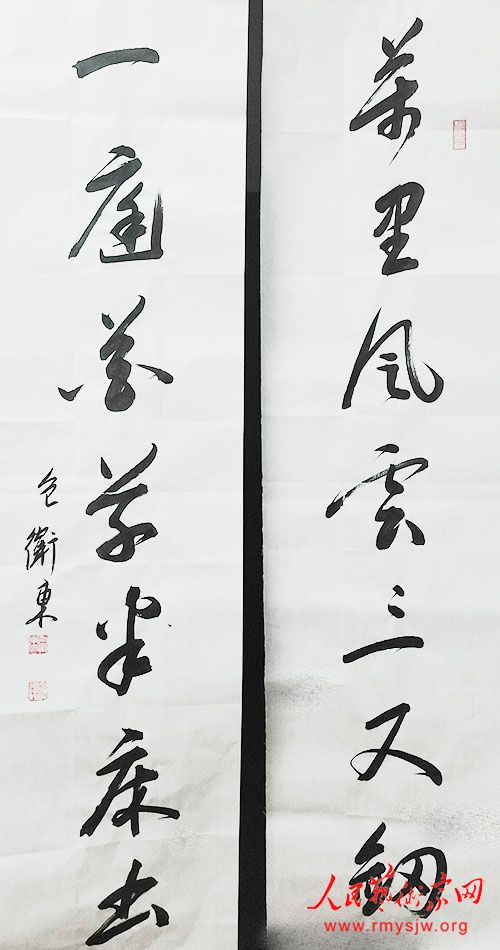 萬里風雲三尺劔
一庭花草半床书
包衛東
人民藝術家网
www.rmysjw.org